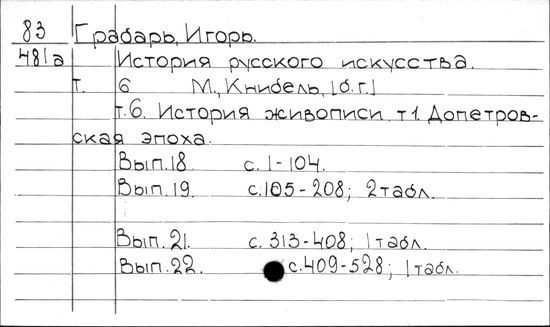 83 Грабарь, Игорь.
481а История русского искусства.
т. 6 М., Книбель, [б.г.]
т.6. История живописи. т1. Допетров-
ская эпоха.
Вып.18 с. 1-104.
Вып.19. с.105-208; 2табл.
Вып.21. с. 313-408; 1табл.
Вып.22. с.409-528; 1табл.